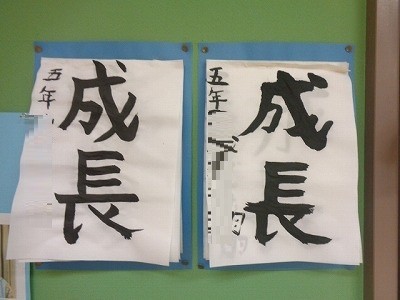 成長
五年
成長
五年